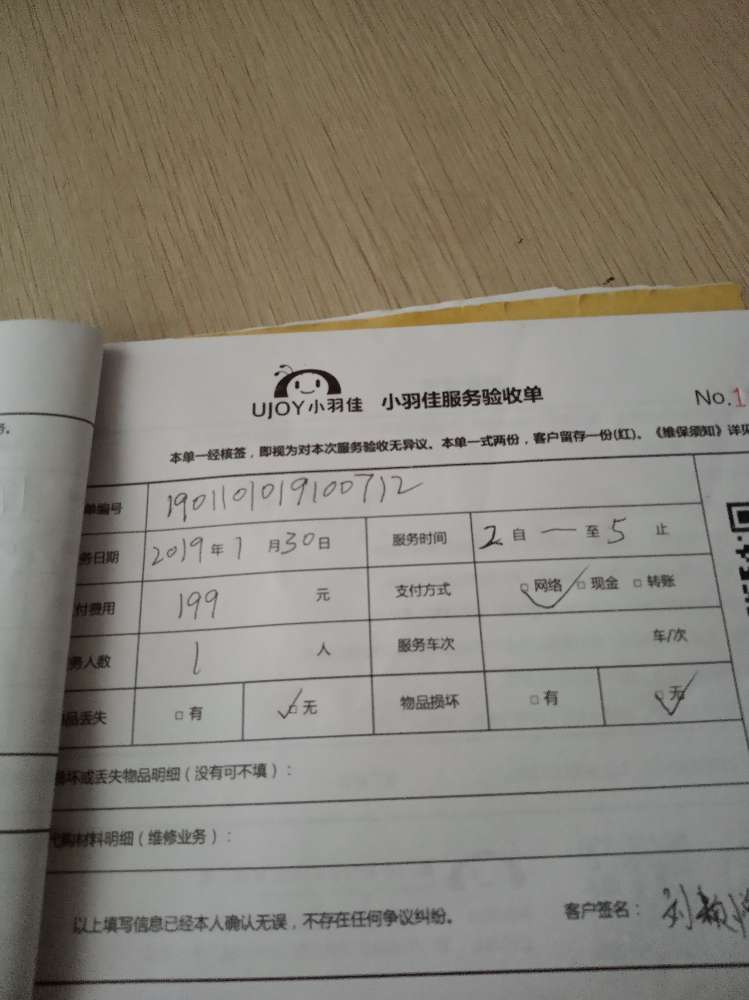 UJOY小羽佳 小羽佳服务验收单 No.1
本单一经核签，即视为对本次服务验收无异议。本单一式两份，客户留存一份(红)。《维保须知》详见
单编号 1901101019100712
务日期 2019年1月30日 服务时间 2自一至5止
付费用 199元 支付方式 □网络 □现金 □转账
务人数 1人 服务车次 车/次
品丢失 □有 □无 物品损坏 □有 □无
损坏或丢失物品明细（没有可不填）：
代购材料明细（维修业务）：
以上填写信息已经本人确认无误，不存在任何争议纠纷。 客户签名：刘